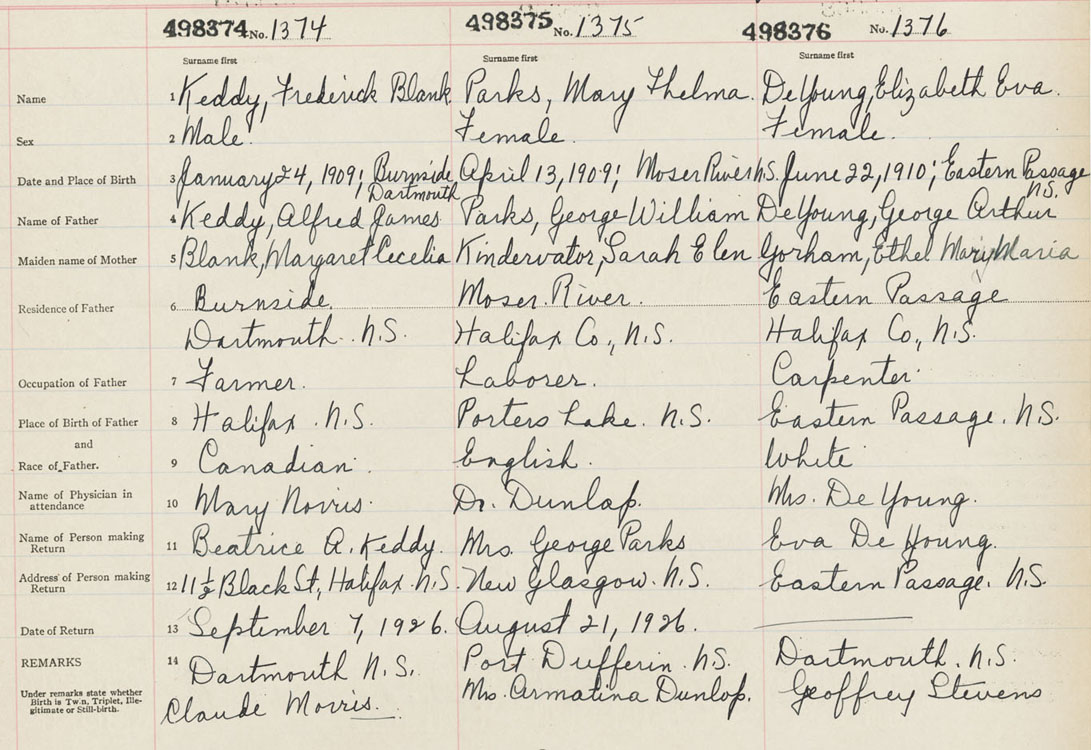 498374 No. 1374 498375 No. 1375 498376 No. 1376
Surname first Surname first Surname first
Name 1 Keddy, Frederick Blank Parks, Mary Thelma. DeYoung, Elizabeth Eva.
Sex 2 Male. Female. Female.
Date and Place of Birth 3 January 24, 1909; Burnside April 13, 1909; Moser River N.S. June 22, 1910; Eastern Passage
Dartmouth N.S.
Name of Father 4 Keddy, Alfred James Parks, George William DeYoung, George Arthur
Maiden name of Mother 5 Blank, Margaret Cecelia Kindervator, Sarah Elen Gorham, Ethel Mary Maria
Residence of Father 6 Burnside. Moser River. Eastern Passage
Dartmouth. N.S. Halifax Co., N.S. Halifax Co., N.S.
Occupation of Father 7 Farmer. Laborer. Carpenter.
Place of Birth of Father 8 Halifax. N.S. Porters Lake. N.S. Eastern Passage. N.S.
and
Race of Father. 9 Canadian. English. White
Name of Physician in
attendance 10 Mary Norris. Dr. Dunlap. Mrs. De Young.
Name of Person making
Return 11 Beatrice A. Keddy. Mrs. George Parks Eva De Young.
Address of Person making
Return 12 11½ Black St., Halifax. N.S. New Glasgow. N.S. Eastern Passage. N.S.
Date of Return 13 September 7, 1926. August 21, 1926.
REMARKS 14 Dartmouth N.S. Port Dufferin. N.S. Dartmouth. N.S.
Under remarks state whether
Birth is Twin, Triplet, Ille-
gitimate or Still-birth.
Claude Morris. Mrs. Armatina Dunlop. Geoffrey Stevens